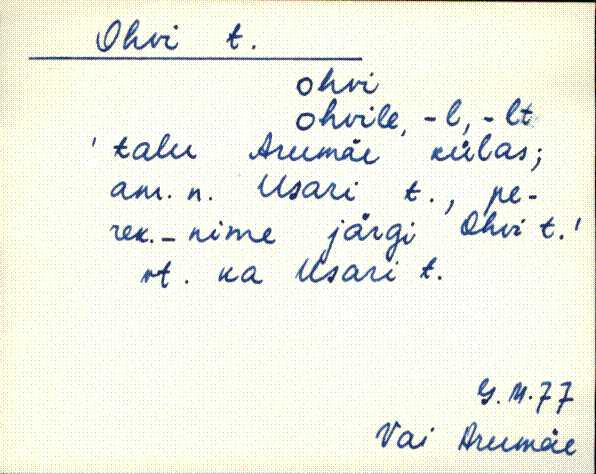 Ohvi t.
ohvi
ohvile, -l, -lt
'talu Arumäe külas;
am. n. Usari t., pe-
rek.-nime järgi Ohvi t.'
vt. ka Usari t.
G.M.77
Vai Arumäe